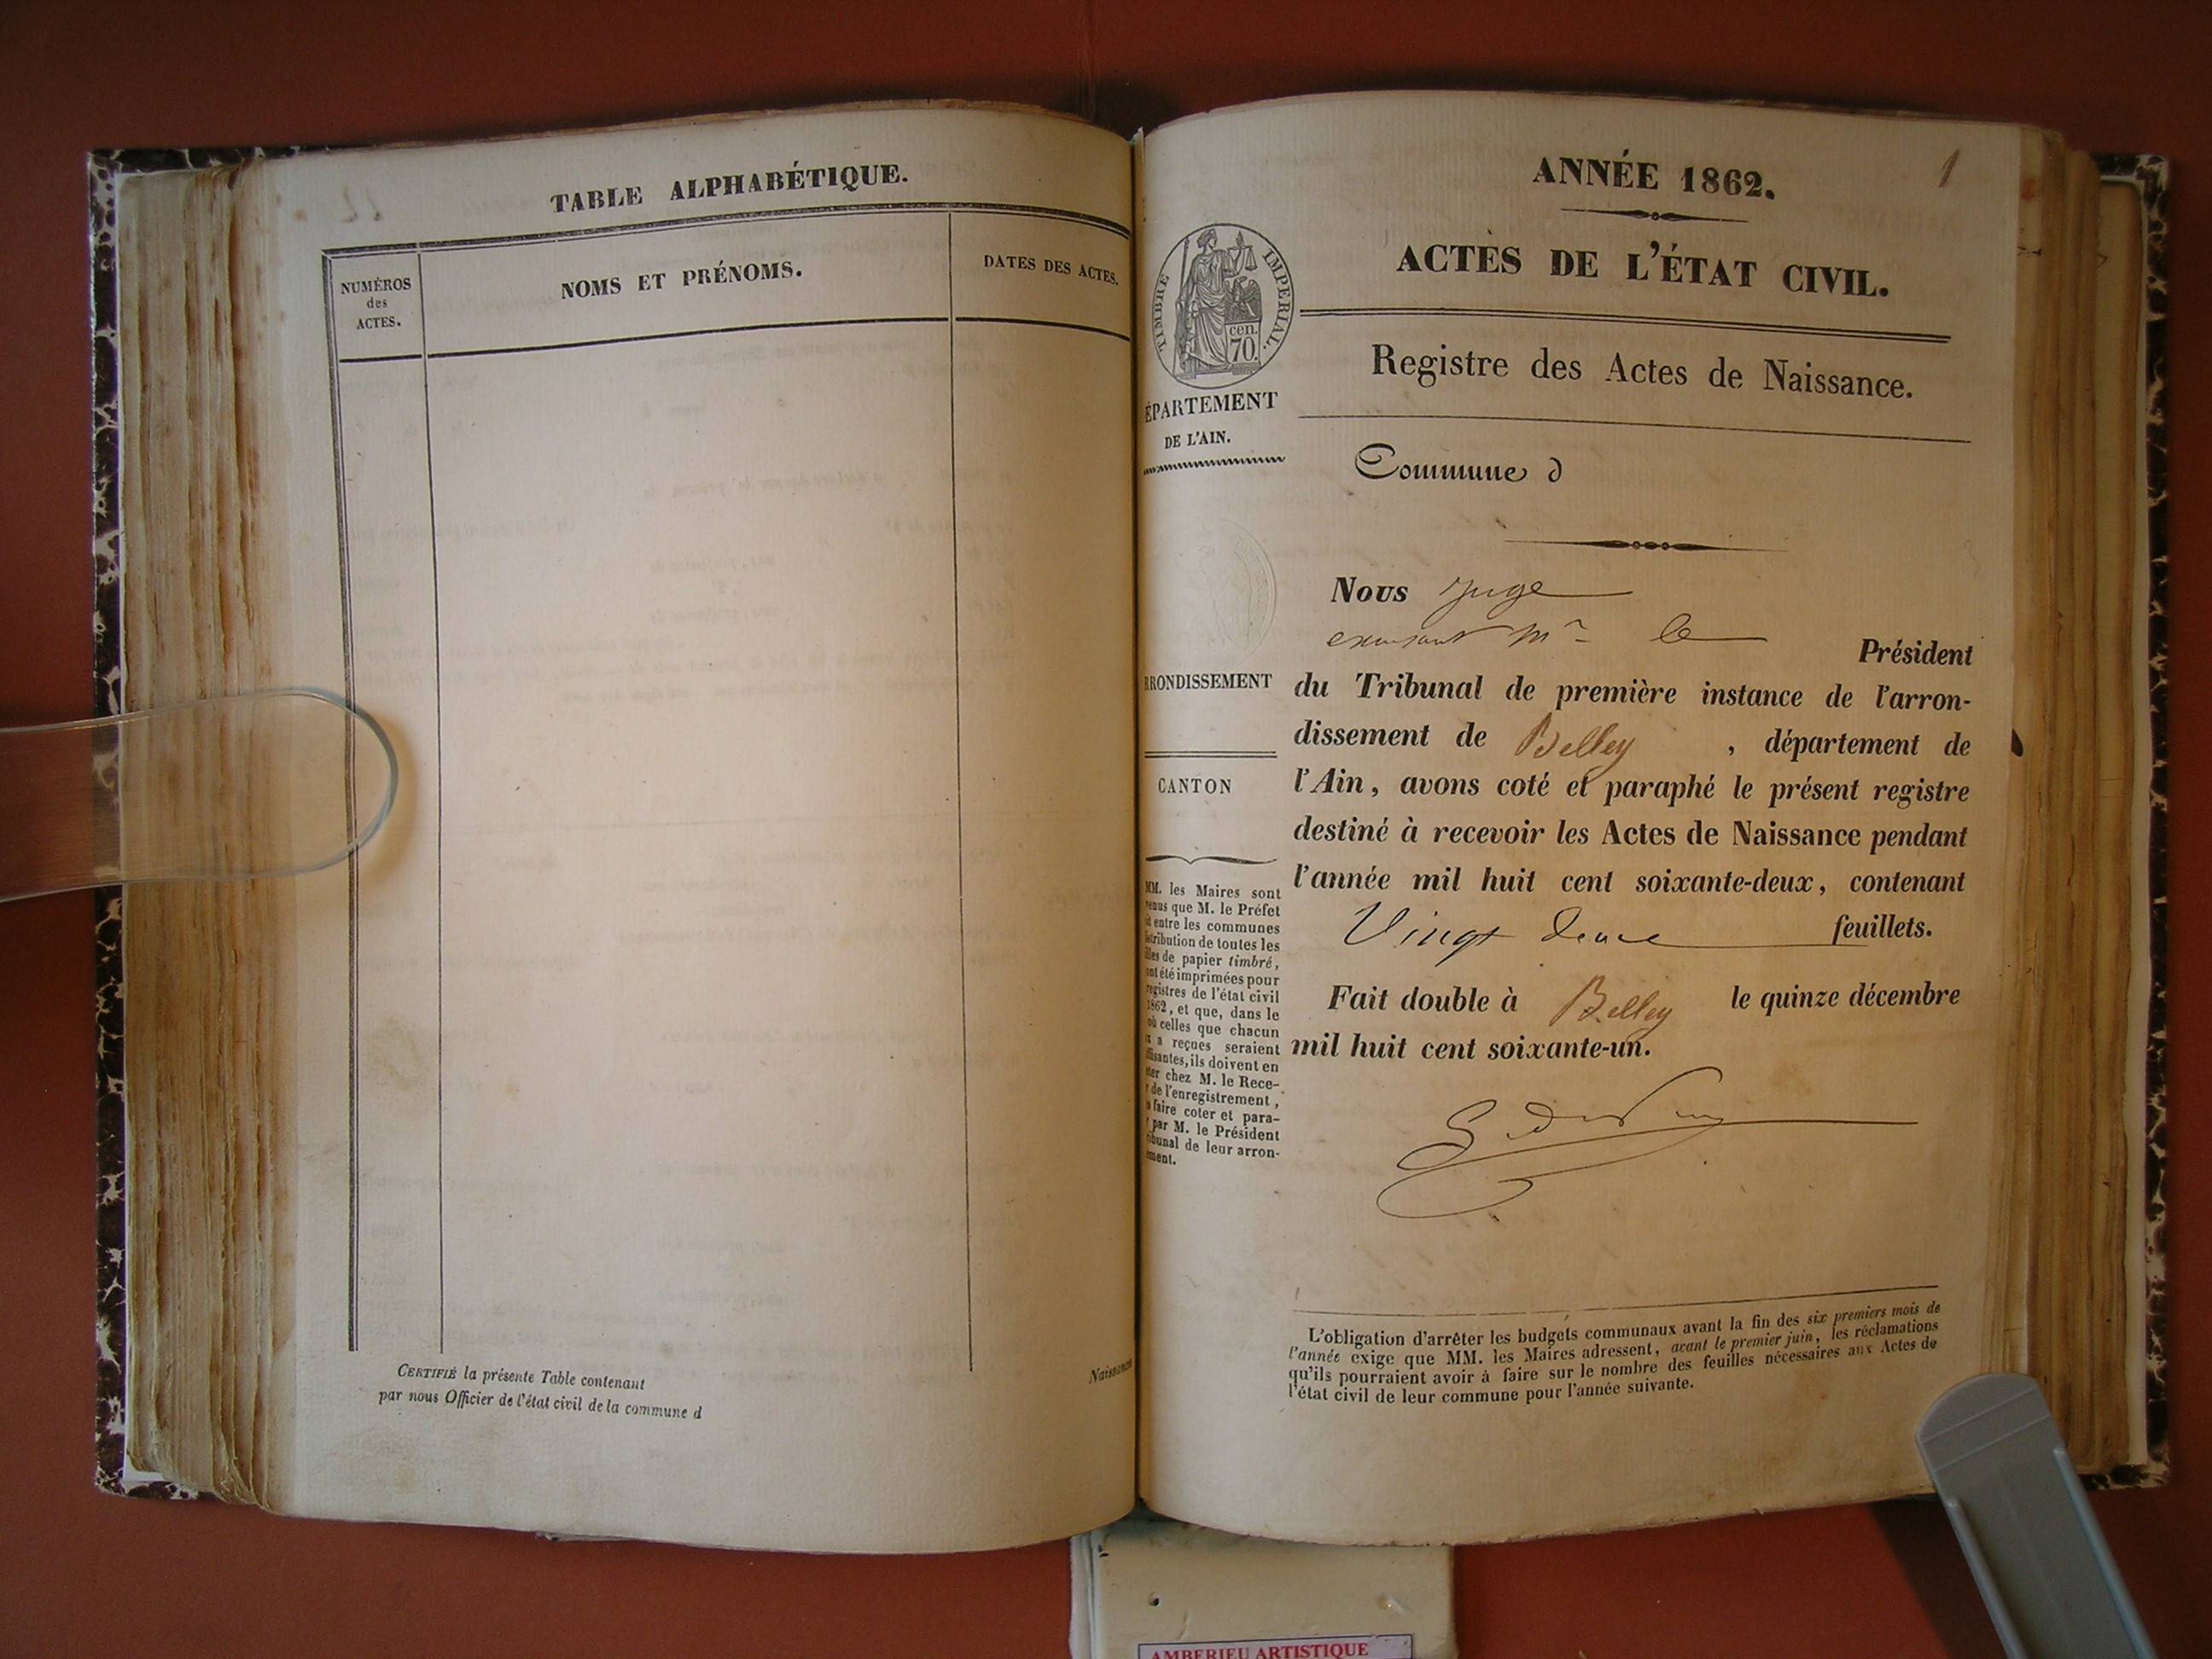 TABLE ALPHABÉTIQUE.
NUMÉROS
des
ACTES.
NOMS ET PRÉNOMS.
DATES DES ACTES.
CERTIFIÉ la présente Table contenant
par nous Officier de l'état civil de la commune d
1
ANNÉE 1862.
ACTES DE L'ÉTAT CIVIL.
TIMBRE IMPERIAL.
cen.
70.
Registre des Actes de Naissance.
ÉPARTEMENT
DE L'AIN.
Commune d
Nous juge
Mr le
Président
RRONDISSEMENT
du Tribunal de première instance de l'arron-
dissement de Belley, département de
CANTON
l'Ain, avons coté et paraphé le présent registre
destiné à recevoir les Actes de Naissance pendant
l'année mil huit cent soixante-deux, contenant
Vingt deux feuillets.
Fait double à Belley le quinze décembre
mil huit cent soixante-un.
MM. les Maires sont
venus que M. le Préfet
it entre les communes
stribution de toutes les
lles de papier timbré,
ont été imprimées pour
registres de l'état civil
1862, et que, dans le
où celles que chacun
x a reçues seraient
ffisantes, ils doivent en
ter chez M. le Rece-
r de l'enregistrement,
s faire coter et para-
r par M. le Président
ribunal de leur arron-
ement.
L'obligation d'arrêter les budgets communaux avant la fin des six premiers mois de
l'année exige que MM. les Maires adressent, avant le premier juin, les réclamations
qu'ils pourraient avoir à faire sur le nombre des feuilles nécessaires aux Actes de
l'état civil de leur commune pour l'année suivante.
AMBERIEU ARTISTIQUE